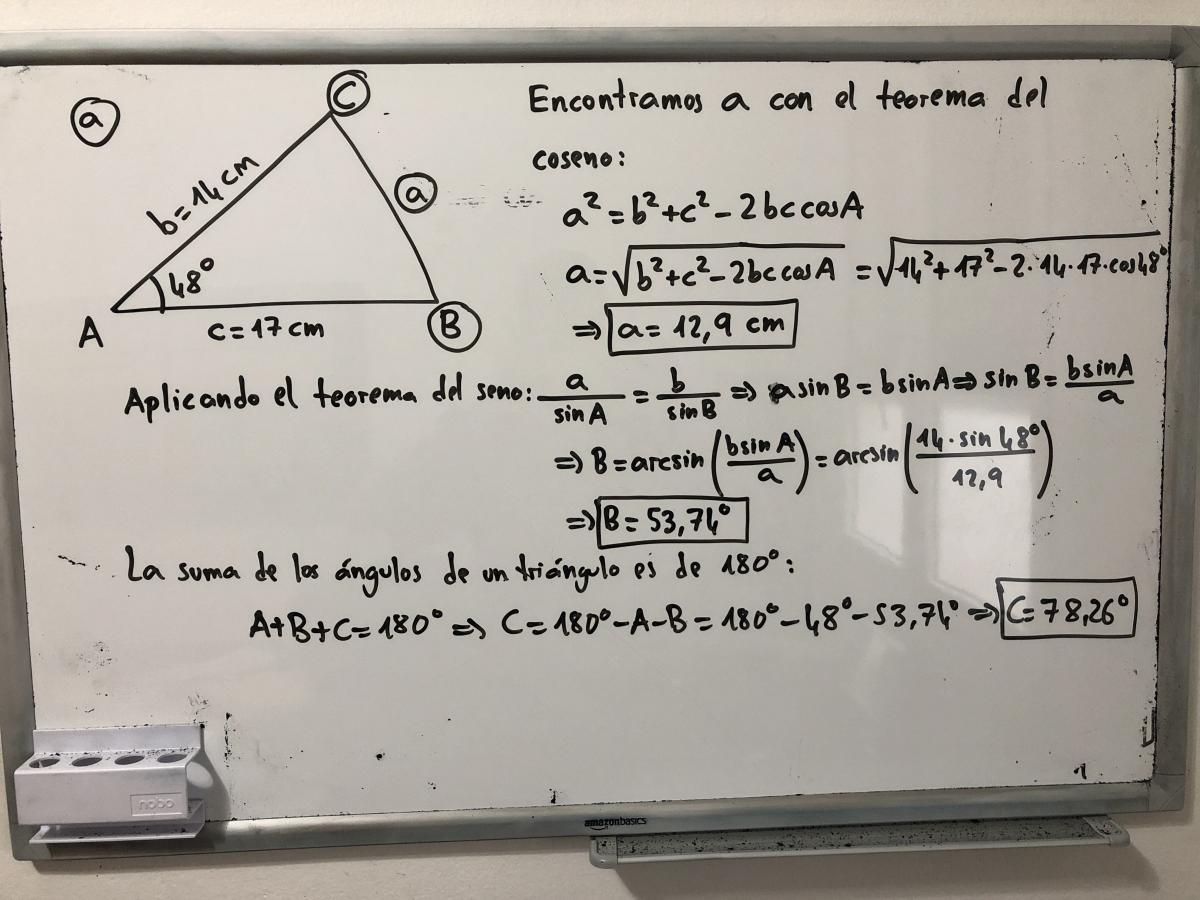 a
C
b = 14 cm
a
48°
A
c = 17 cm
B
Encontramos a con el teorema del
coseno:
a² = b² + c² - 2bc cos A
a = √(b² + c² - 2bc cos A) = √(14² + 17² - 2·14·17·cos 48°)
⇒ a = 12,9 cm
Aplicando el teorema del seno: a/sin A = b/sin B ⇒ a sin B = b sin A ⇒ sin B = b sin A/a
⇒ B = arcsin (b sin A/a) = arcsin (14·sin 48°/12,9)
⇒ B = 53,74°
La suma de los ángulos de un triángulo es de 180°:
A + B + C = 180° ⇒ C = 180° - A - B = 180° - 48° - 53,74° ⇒ C = 78,26°
nobo
amazonbasics